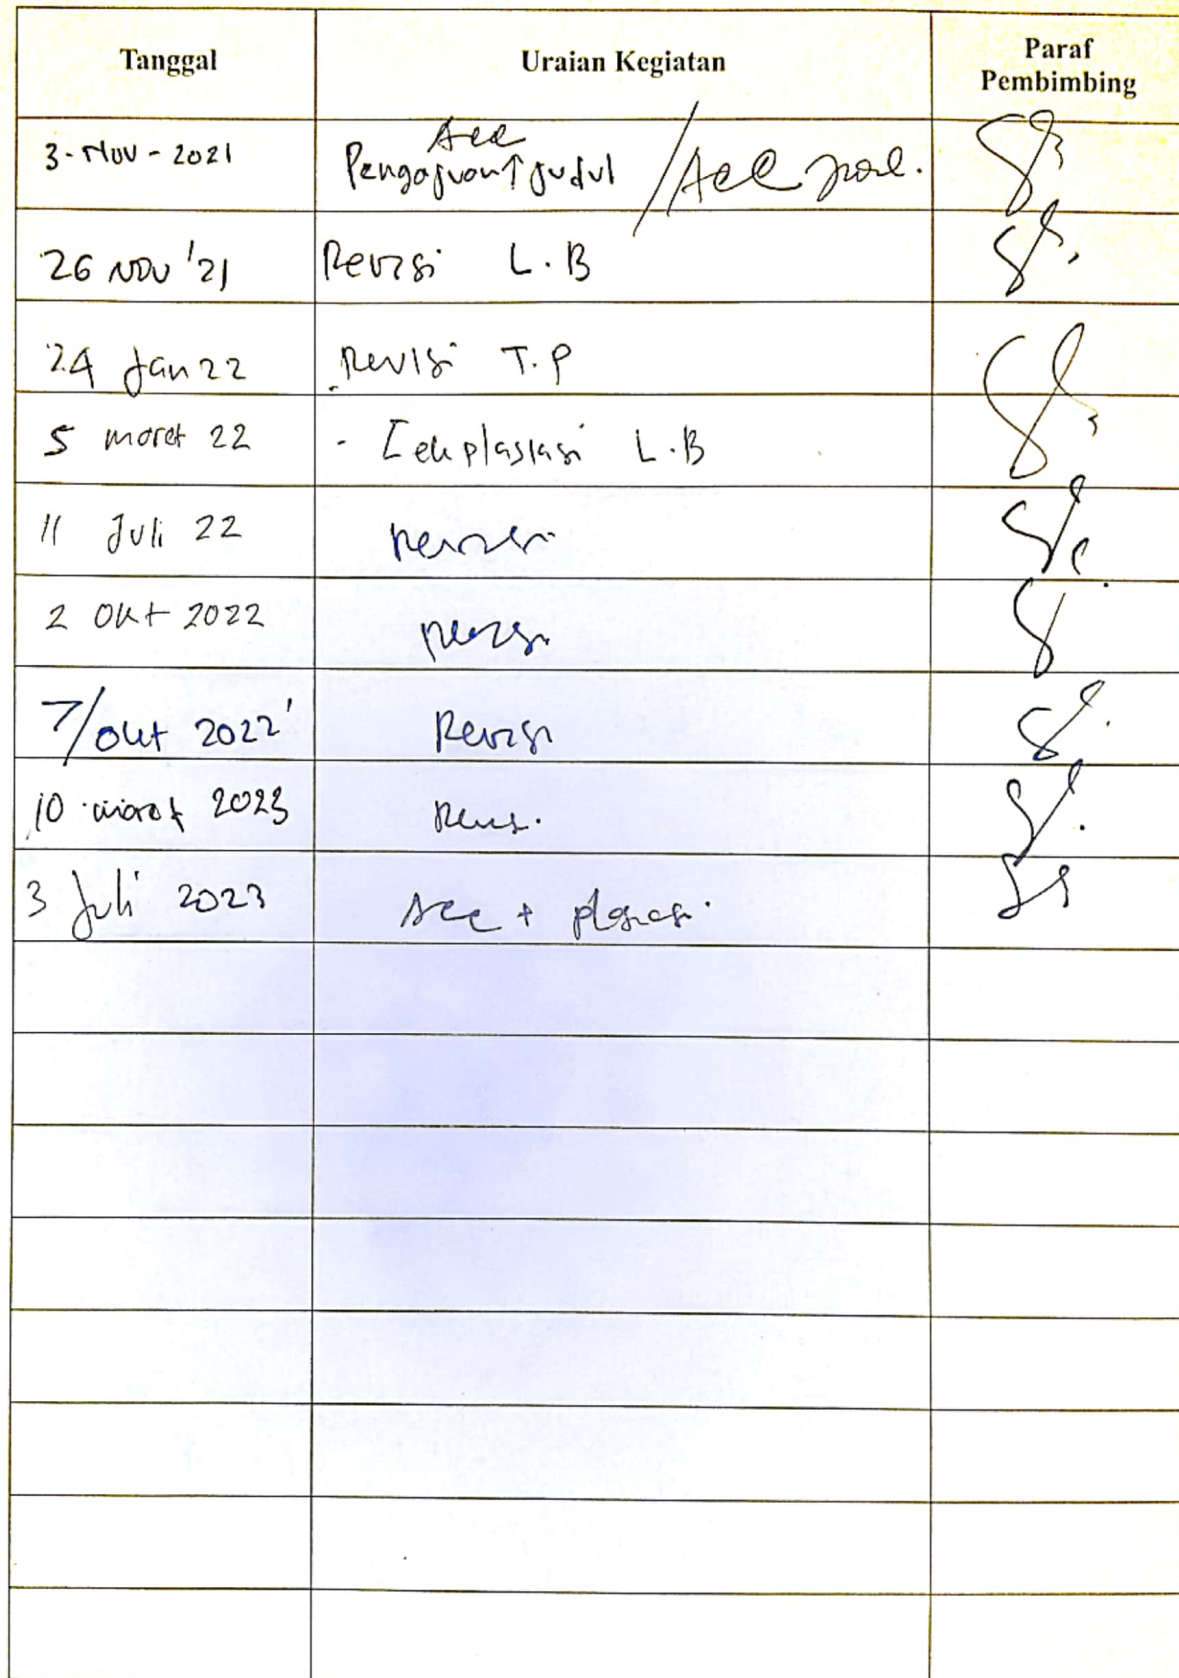 Tanggal Uraian Kegiatan Paraf
Pembimbing
3-Nov-2021 Acc
Pengajuan↑judul / Acc
26 NOV '21 Revisi L.B
24 Jan 22 Revisi T.P
5 maret 22 - L.B
11 Juli 22 Revisi
2 Okt 2022 Revisi
7/Okt 2022' Revisi
10 maret 2023
3 Juli 2023 Acc +